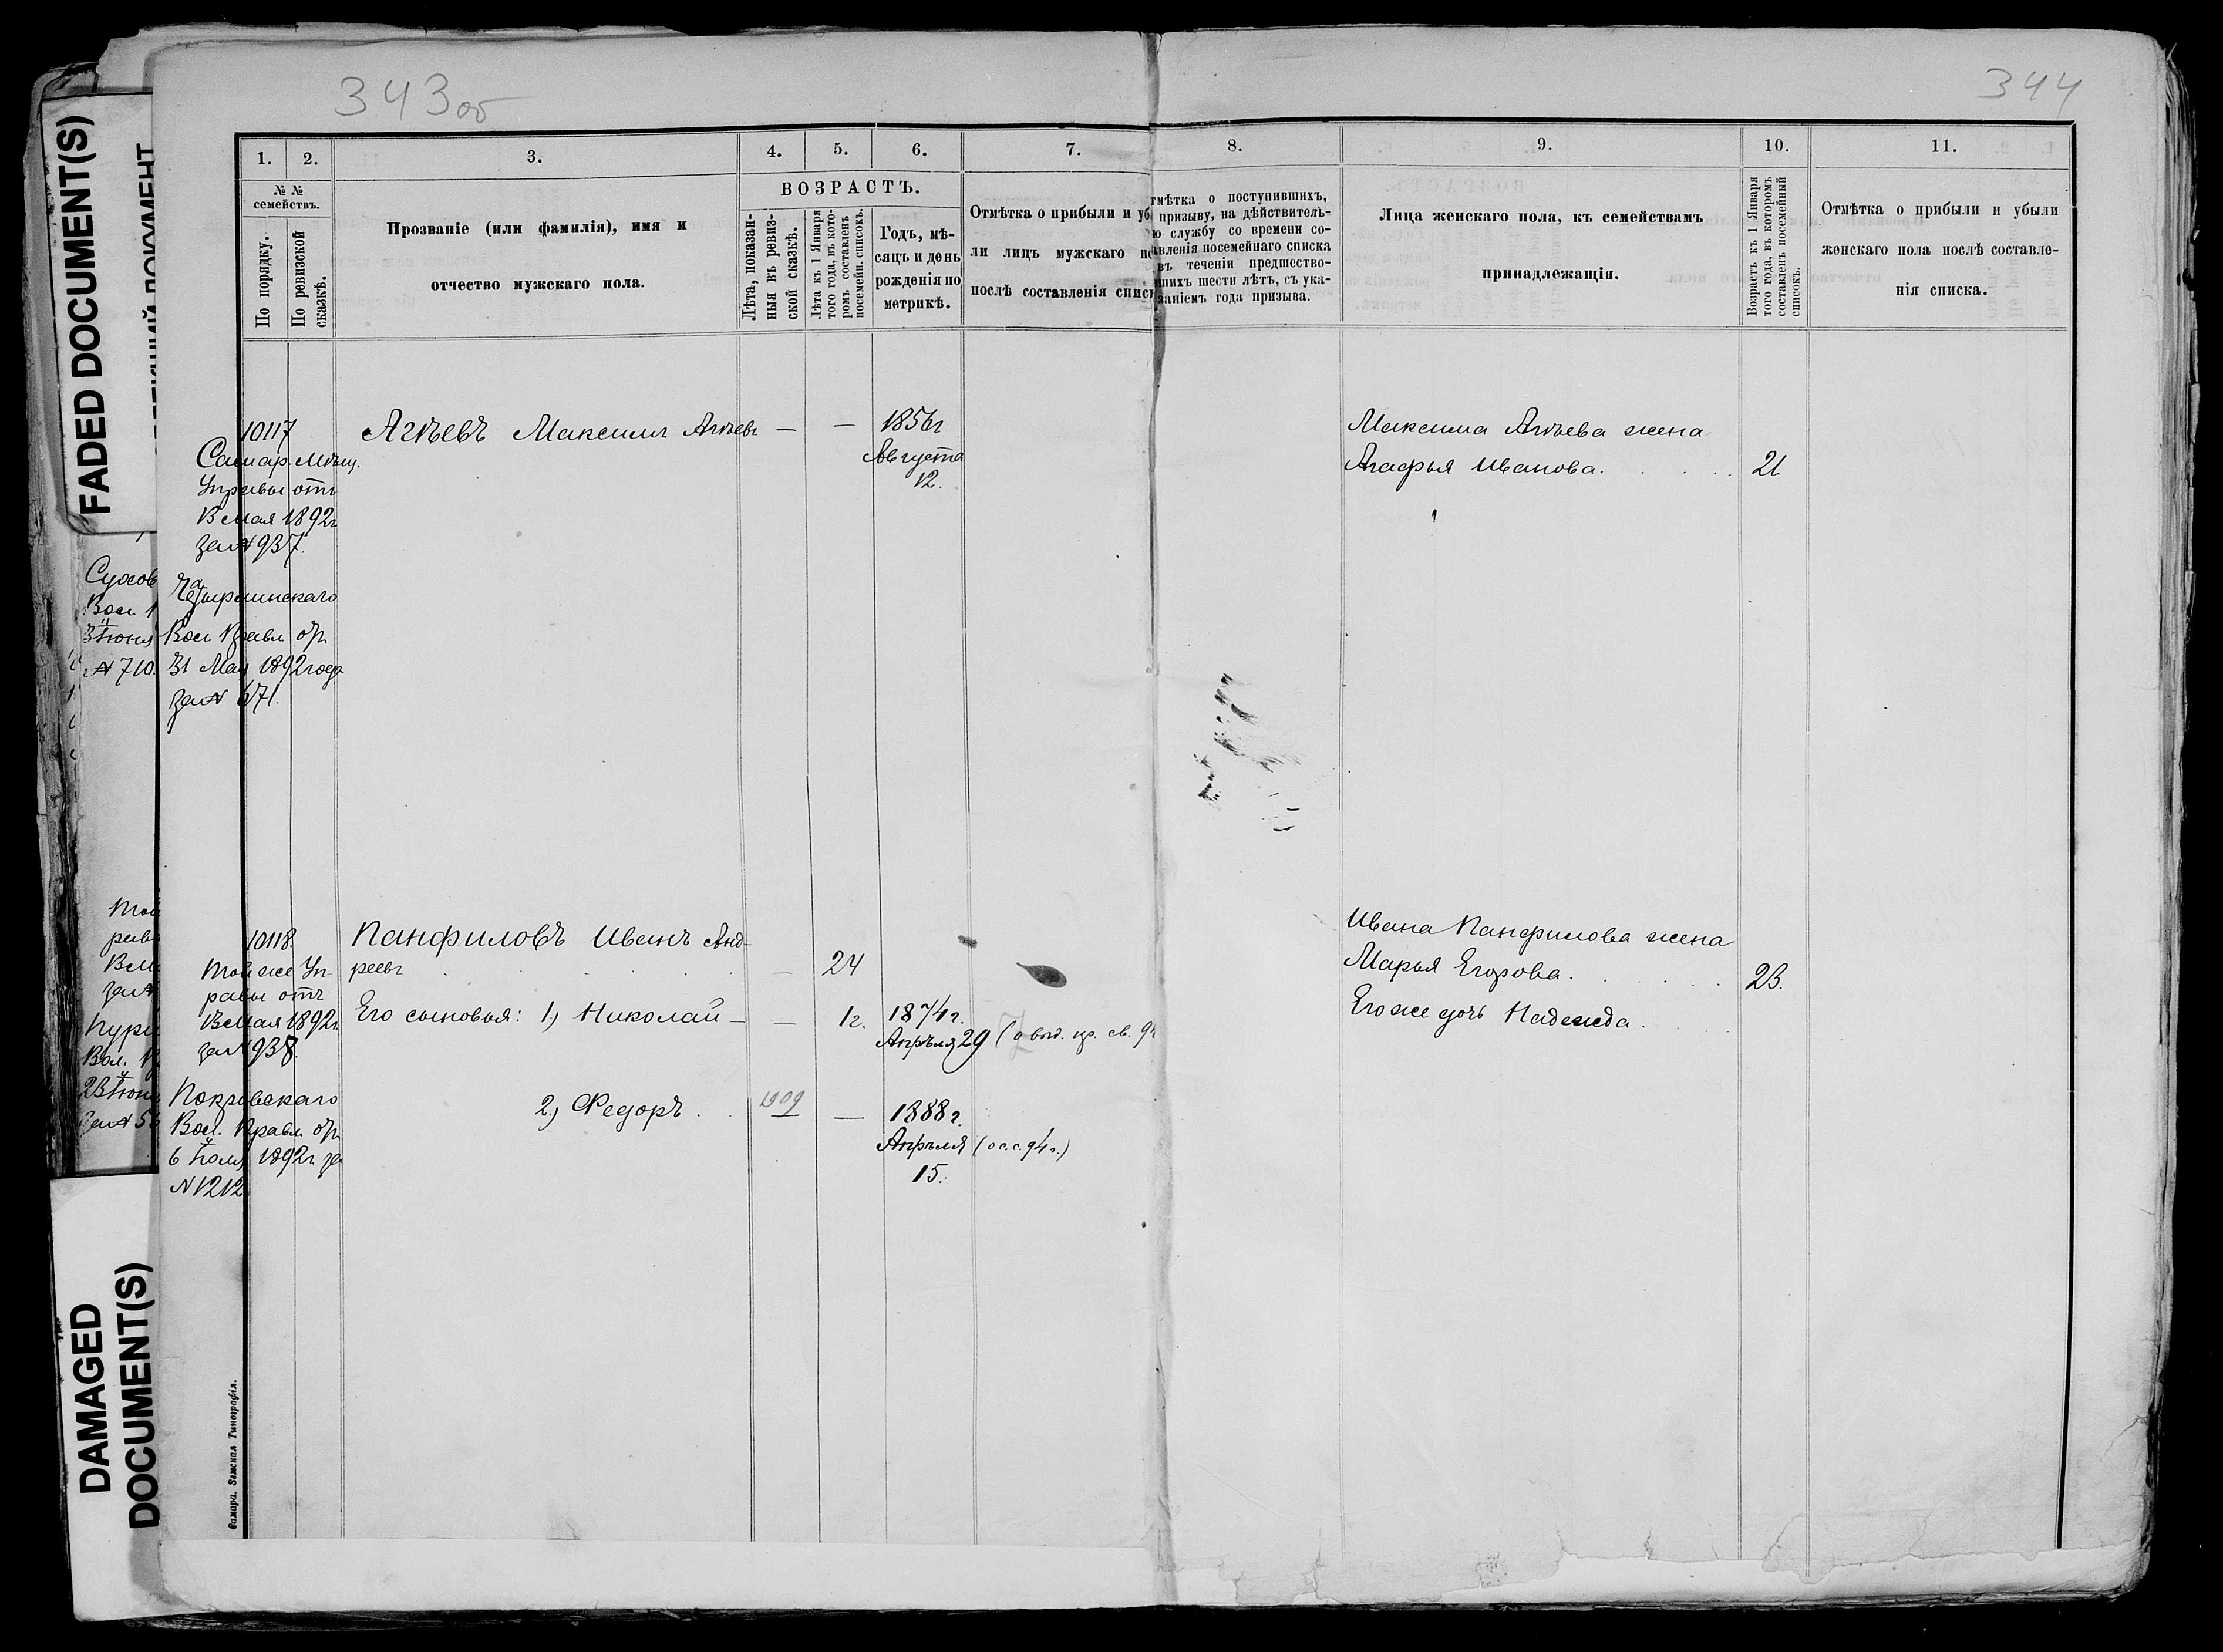 343об
344
FADED DOCUMENT(S)
DAMAGED
DOCUMENT(S)
1.
2.
3.
4.
5.
6.
7.
8.
9.
10.
11.
№ №
семействъ.
По порядку.
По ревизской
сказкѣ.
Прозваніе (или фамилія), имя и
отчество мужскаго пола.
ВОЗРАСТЪ.
Лѣта, показан-
ныя въ ревиз-
ской сказкѣ.
Лѣта къ 1 Января
того года, въ кото-
ромъ составленъ
посемейн. списокъ.
Годъ, мѣ-
сяцъ и день
рожденія по
метрикѣ.
Отмѣтка о прибыли и уб
ли лицъ мужскаго по
послѣ составленія списк
тмѣтка о поступившихъ,
призыву, на дѣйствитель-
ю службу со времени со-
авленія посемейнаго списка
въ теченіи предшество-
шихъ шести лѣтъ, съ ука-
заніемъ года призыва.
Лица женскаго пола, къ семействамъ
принадлежащія.
Возрастъ къ 1 Января
того года, въ которомъ
составленъ посемейный
списокъ.
Отмѣтка о прибыли и убыли
женскаго пола послѣ составле-
нія списка.
10117
Самар. Мѣщ.
Управы отъ
13 мая 1892г
за № 937.
Вол. Правл. от
31 Мая 1892 года
за № 671.
Агѣевъ Максимъ Агѣевъ — —
1856г
Августа
12.
Максима Агѣева жена
Агафья Иванова. 21
Сухов
Вол.
Іюня
№ 710.
10118.
Той же Уп-
равы отъ
13 мая 1892г
за № 938.
Покровскаго
Вол. Правл. от
6 Іюля 1892г за
№ 1212
Панфиловъ Иванъ Анд-
реевъ — 24
Его сыновья: 1, Николай — — 1г. 1874г.
Апрѣля 29 (о выд. пр. св. 94
2, Федоръ 1909 — 1888г.
Апрѣля (о с. с. 94г.)
15.
Ивана Панфилова жена
Марья Егорова. 23.
Его же дочь Надежда.
Самара. Земская Типографія.